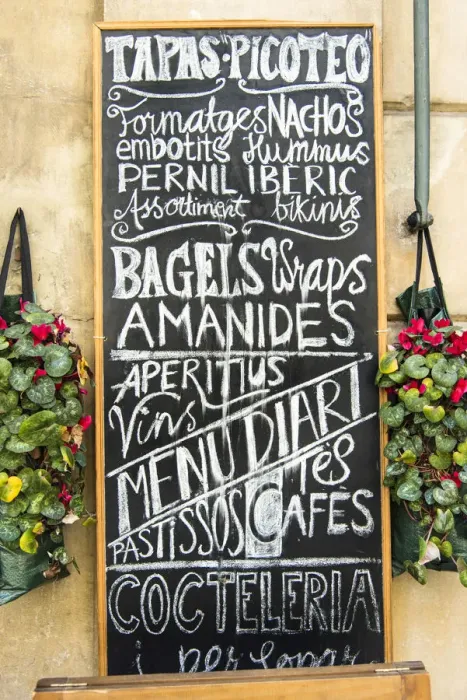 TAPAS·"PICOTEO"
Formatges NACHOS
embotits Hummus
PERNIL IBÈRIC
Assortiment bikinis
BAGELS Wraps
AMANIDES
APERITIUS
Vins
MENU DIARI
Tès
PASTISSOS CAFÈS
COCTELERIA
i per